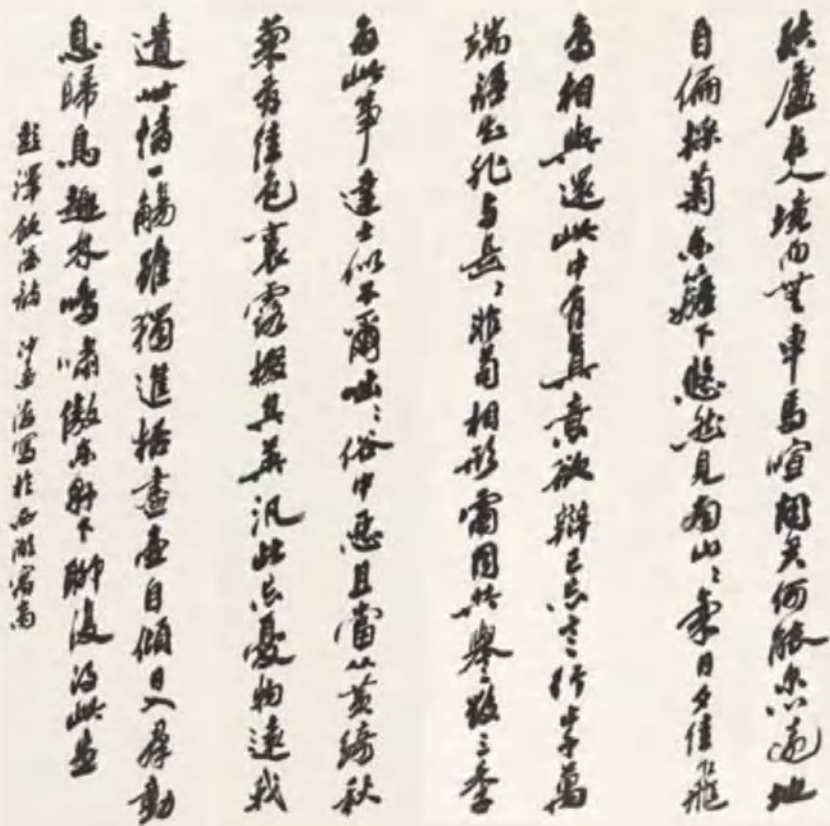 結廬在人境而無車馬喧問君何能尔心遠地
自偏採菊東籬下悠然見南山〻氣日夕佳飛
鳥相與還此中有真意欲辯已忘言行止千萬
端誰知非与是〻非苟相形雷同共譽毀三季
多此事達士似不爾咄〻俗中惡且當从黃綺秋
菊有佳色裛露掇其英汎此忘憂物遠我
遺世情一觴雖獨進杯盡壺自傾日入群動
息歸鳥趨林鳴嘯傲東軒下聊復得此生
彭澤飲酒詩 沙孟海寫於西湖寓齋